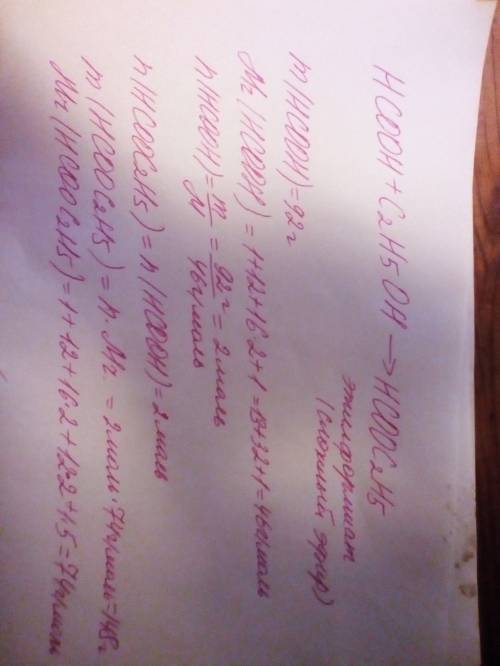 HCOOH + C2H5OH → HCOOC2H5
этилформиат
(сложный эфир)
m(HCOOH) = 92 г
Mr(HCOOH) = 1+12+16·2+1 = 13+32+1 = 46 г/моль
n(HCOOH) = m/M = 92 г/46 г/моль = 2 моль
n(HCOOC2H5) = n(HCOOH) = 2 моль
m(HCOOC2H5) = n·Mr = 2 моль·74 г/моль = 148 г
Mr(HCOOC2H5) = 1+12+16·2+12·2+1·5 = 74 г/моль